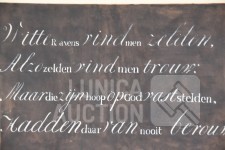 Witte Ravens vind men zelden,
Alzo zelden vind men trouw;
Maar die zijn hoop op God vast stelden,
Hadden daar van nooit berouw
LUNICA
AUCTION